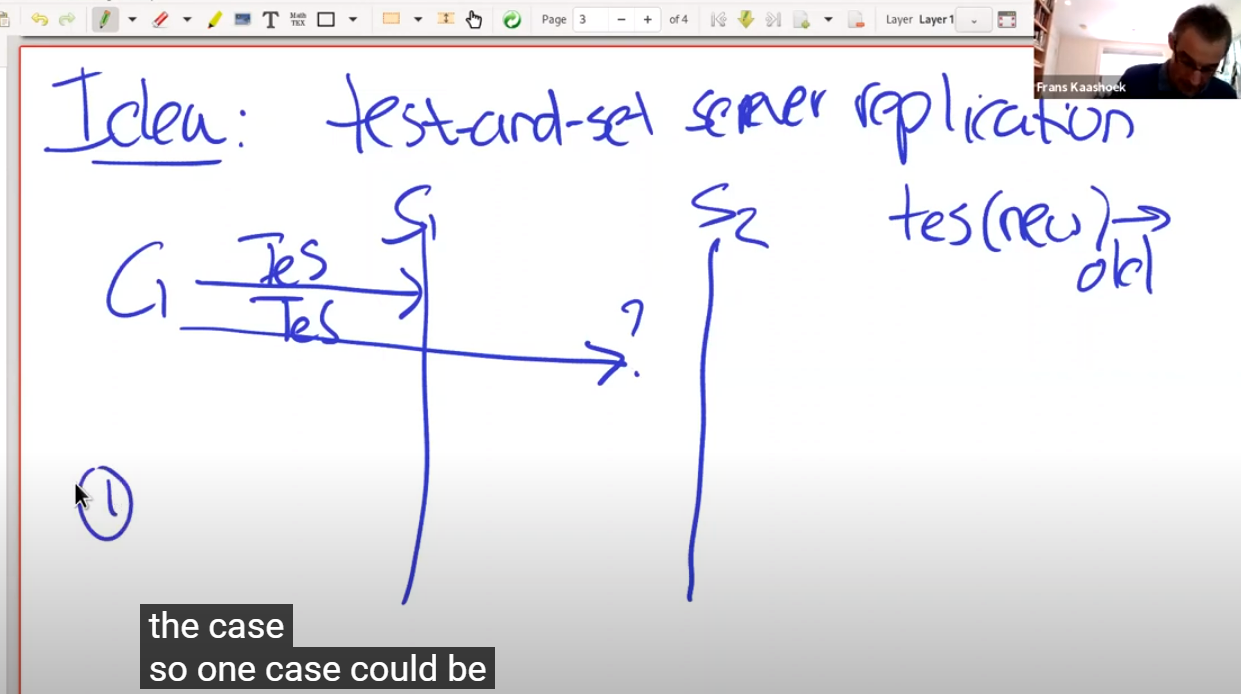 T Math TEX Page 3 − + of 4 Layer Layer 1
Frans Kaashoek
Idea: test-and-set server replication
S1 S2 tes(new) → old
C1 TeS
TeS ?
1
the case
so one case could be